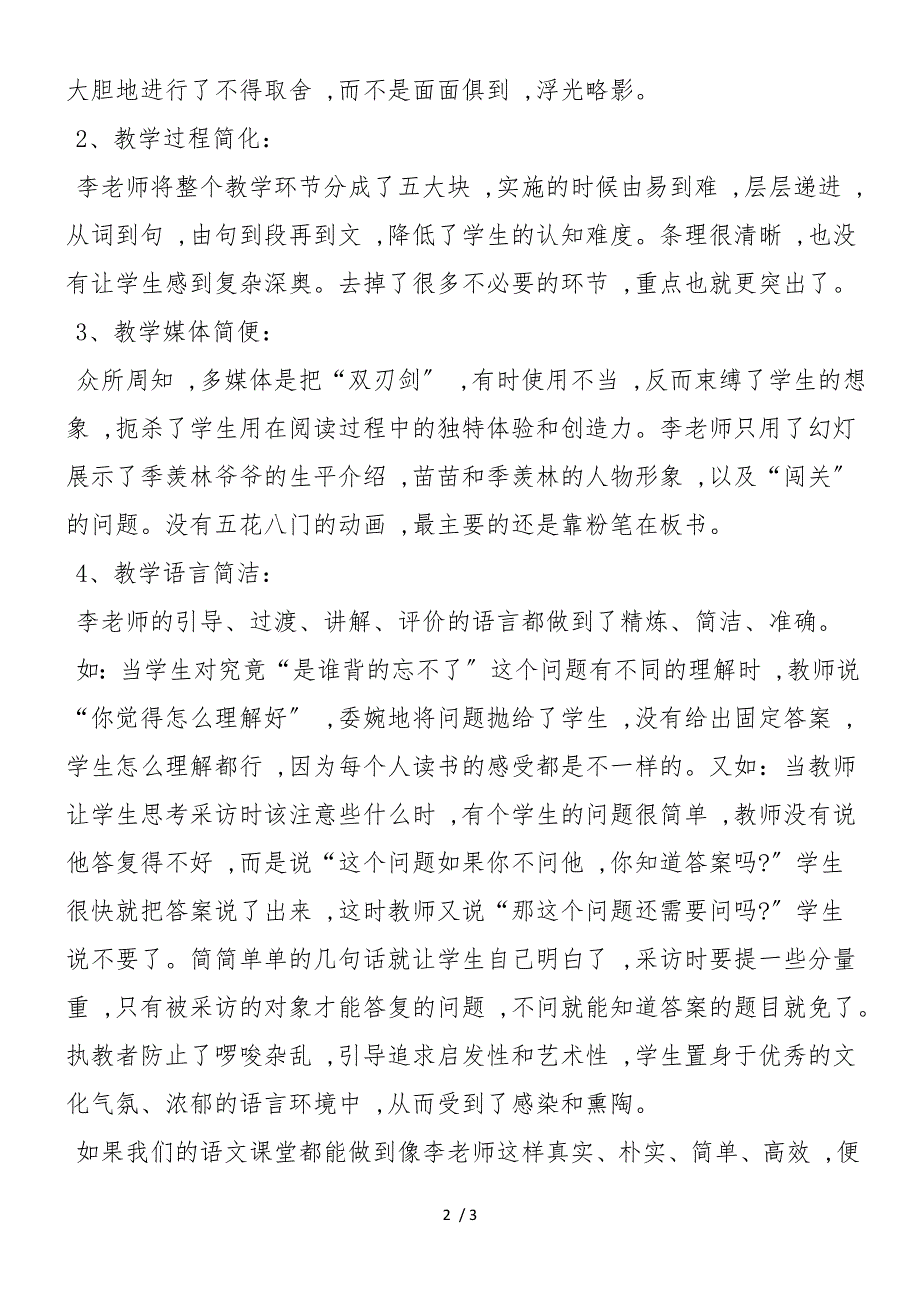 大胆地进行了不得取舍 ,而不是面面俱到 ,浮光略影。
2、教学过程简化：
李老师将整个教学环节分成了五大块 ,实施的时候由易到难 ,层层递进 ,
从词到句 ,由句到段再到文 ,降低了学生的认知难度。条理很清晰 ,也没
有让学生感到复杂深奥。去掉了很多不必要的环节 ,重点也就更突出了。
3、教学媒体简便：
众所周知 ,多媒体是把“双刃剑〞 ,有时使用不当 ,反而束缚了学生的想
象 ,扼杀了学生用在阅读过程中的独特体验和创造力。李老师只用了幻灯
展示了季羡林爷爷的生平介绍 ,苗苗和季羡林的人物形象 ,以及“闯关〞
的问题。没有五花八门的动画 ,最主要的还是靠粉笔在板书。
4、教学语言简洁：
李老师的引导、过渡、讲解、评价的语言都做到了精炼、简洁、准确。
如：当学生对究竟“是谁背的忘不了〞这个问题有不同的理解时 ,教师说
“你觉得怎么理解好〞 ,委婉地将问题抛给了学生 ,没有给出固定答案 ,
学生怎么理解都行 ,因为每个人读书的感受都是不一样的。又如：当教师
让学生思考采访时该注意些什么时 ,有个学生的问题很简单 ,教师没有说
他答复得不好 ,而是说“这个问题如果你不问他 ,你知道答案吗?〞学生
很快就把答案说了出来 ,这时教师又说“那这个问题还需要问吗?〞学生
说不要了。简简单单的几句话就让学生自己明白了 ,采访时要提一些分量
重 ,只有被采访的对象才能答复的问题 ,不问就能知道答案的题目就免了。
执教者防止了啰唆杂乱 ,引导追求启发性和艺术性 ,学生置身于优秀的文
化气氛、浓郁的语言环境中 ,从而受到了感染和熏陶。
如果我们的语文课堂都能做到像李老师这样真实、朴实、简单、高效 ,便
2 / 3